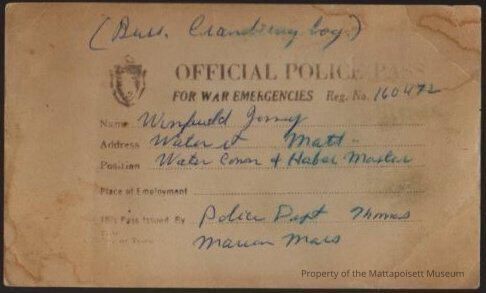 (Bus. Cranberry Bog.)
OFFICIAL POLICE PASS
FOR WAR EMERGENCIES Reg. No. 160472
Name Winfield
Address Water st Matt
Position Water Comm & Habor Master
Place of Employment
This Pass Issued By Police Dept Thomas
Title
City or Town Marion Mass
Property of the Mattapoisett Museum